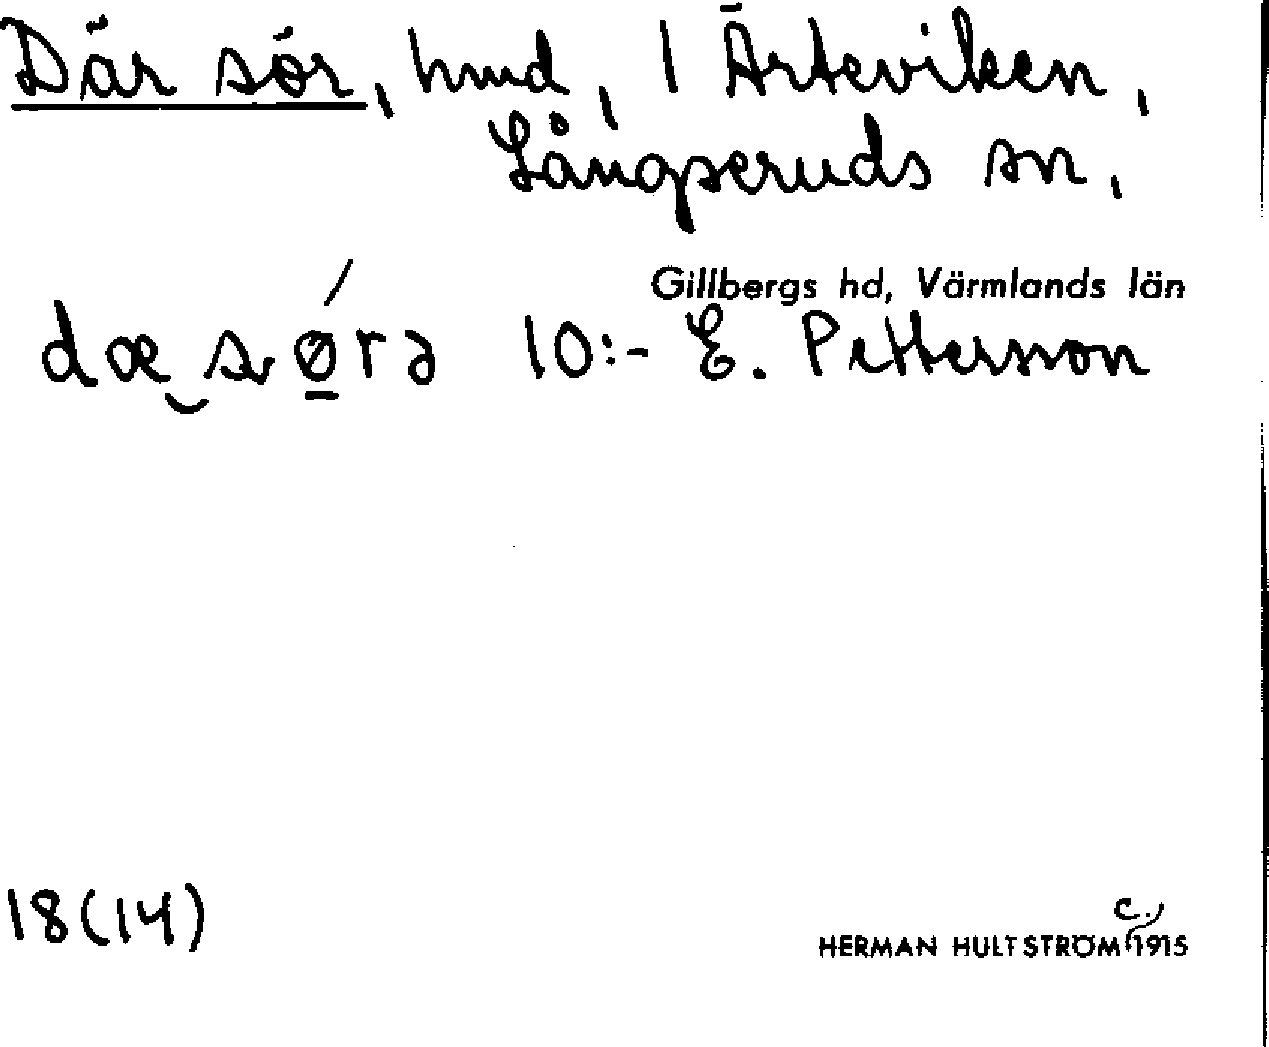 Där sör, hmd, 1 Ärteviken,
Långseruds sn,
Gillbergs hd, Värmlands län
dæ sørə 10:- E. Pettersson
18(14)
HERMAN HULTSTRÖM c., 1915